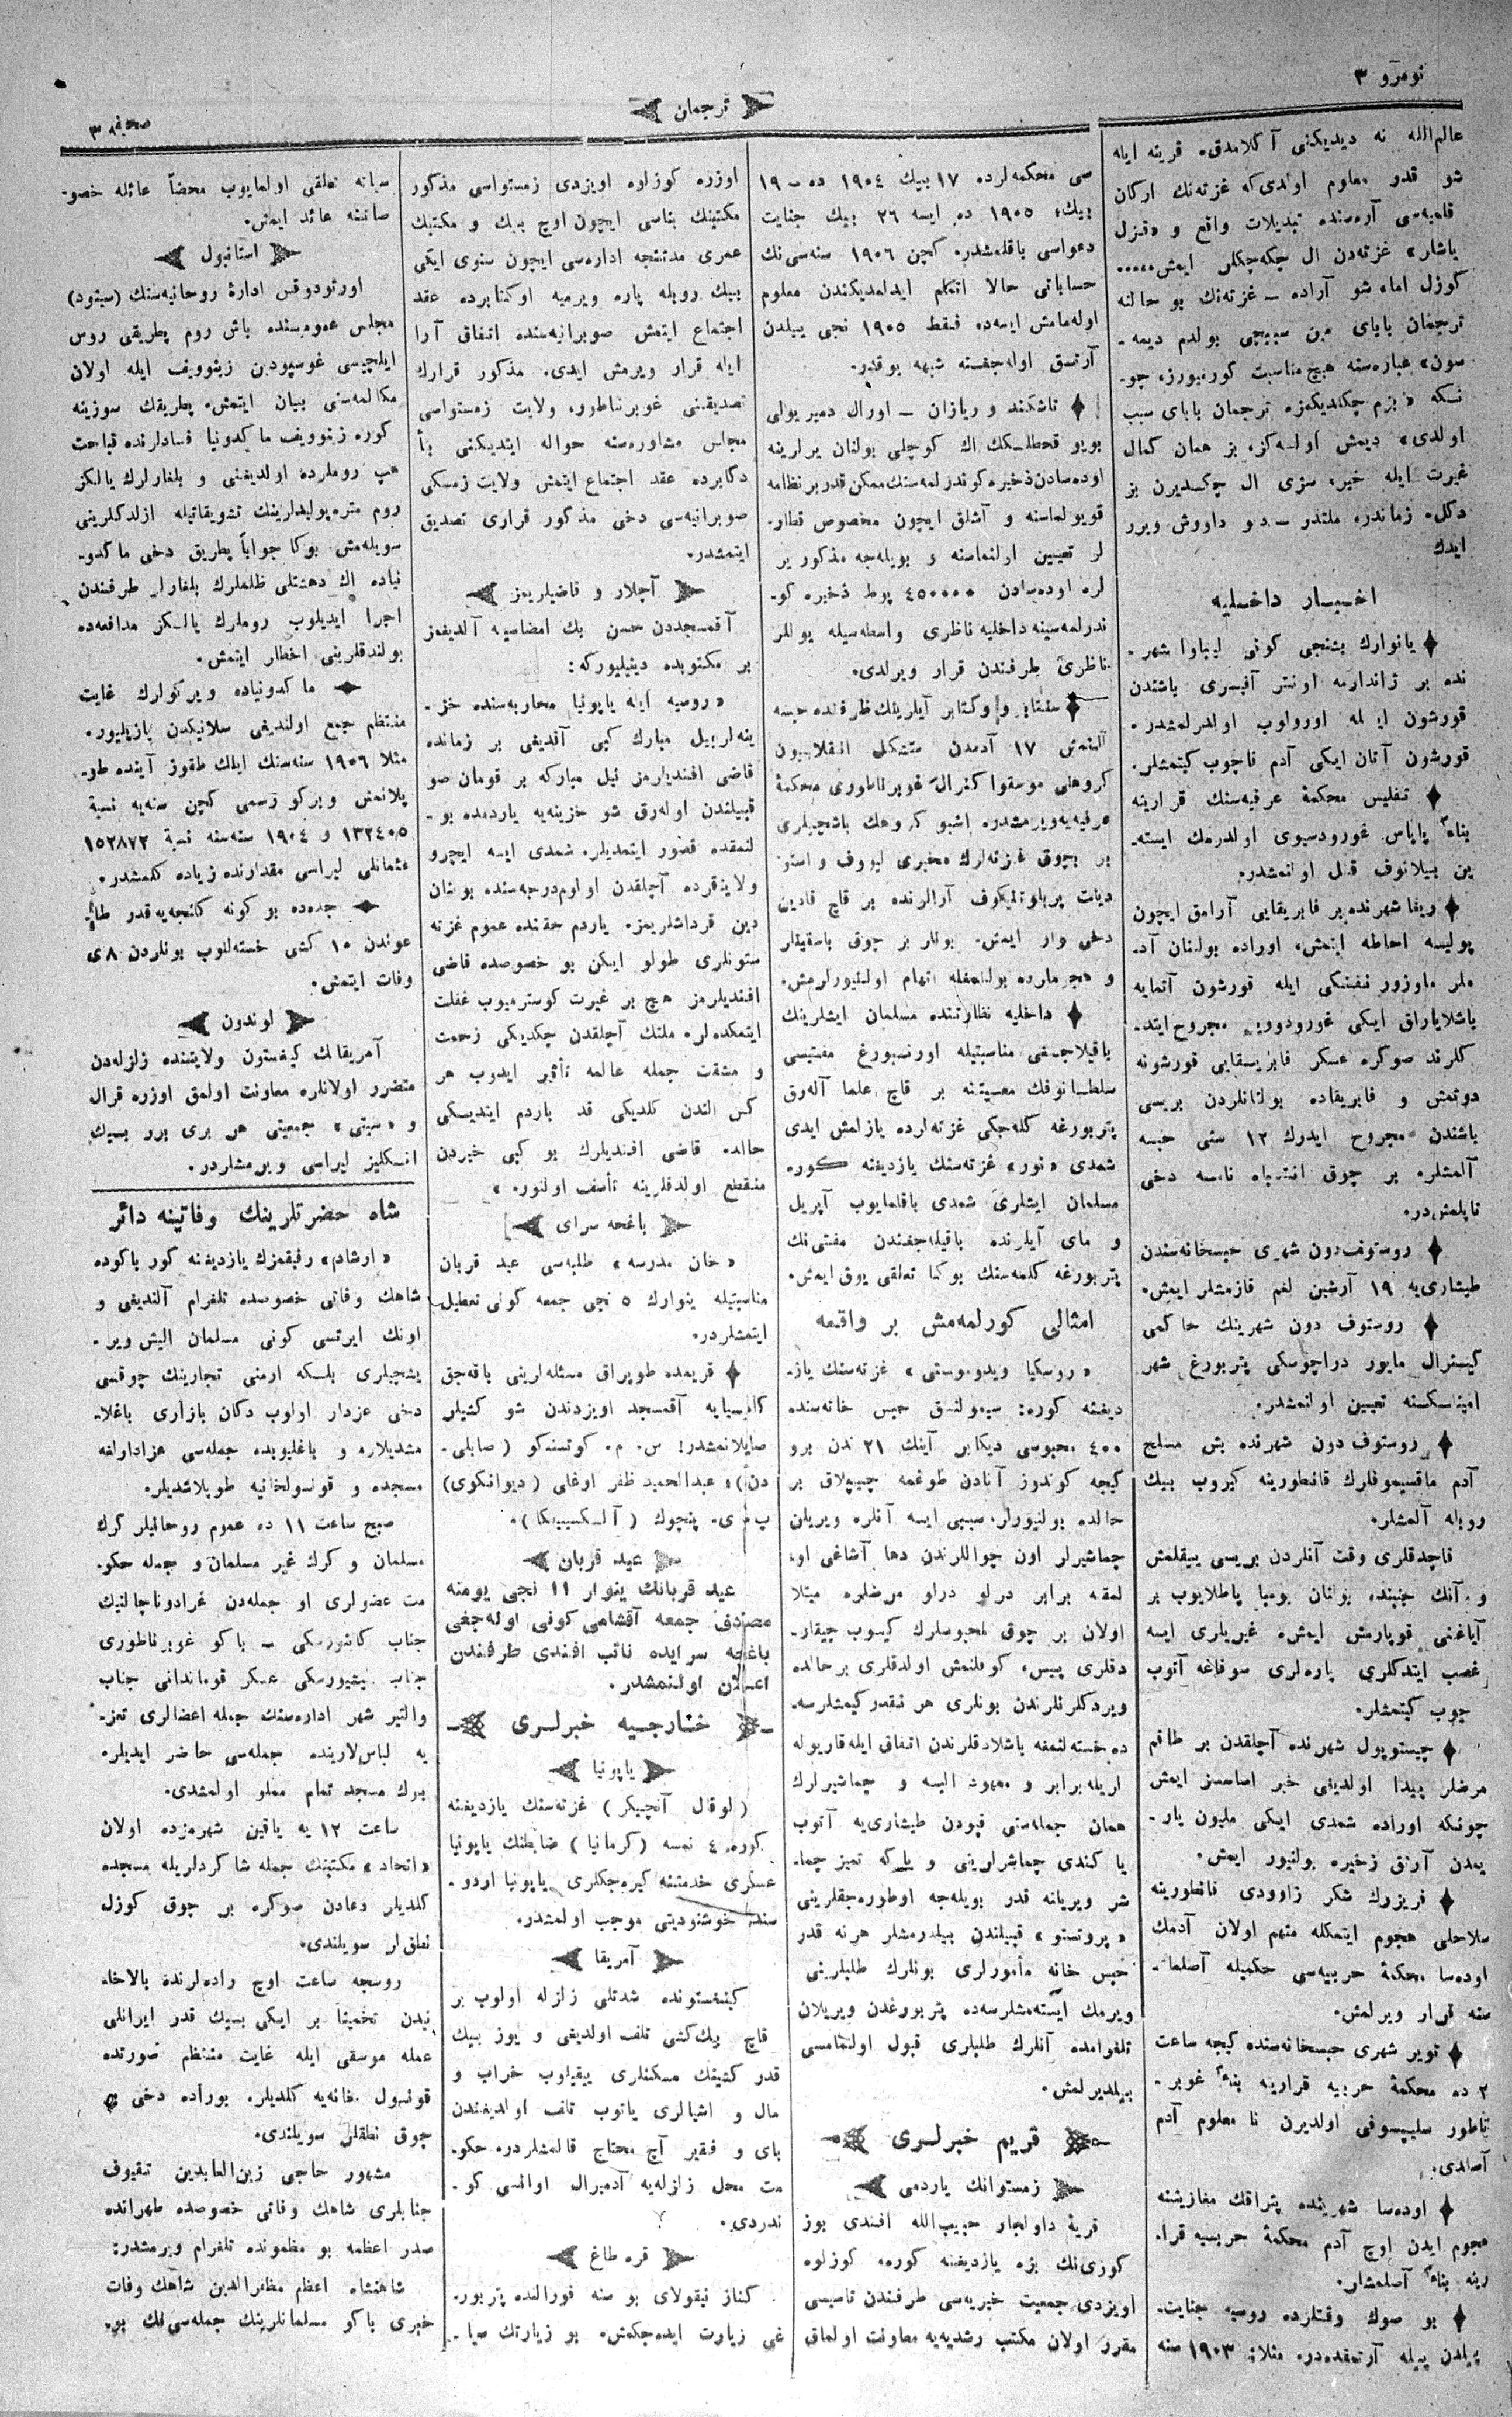 نومرو ۳
ترجمان
صحیفه ۳
عالم‌الله نه دیدیکنی آکلامدق، قرینه ایله
شو قدر معلوم اولدی‌که غزته‌نك ارکان
قلمیه‌سی آره‌سنده تبدیلات واقع و «قزل
یاشار» غزته‌دن ال چکه‌چکلر ایمش.....
کوزل اما، شو آراده – غزته‌نك بو حالنه
ترجمان بابای من سببچی بولدم دیمه-
سون» عباره‌سنه هیچ مناسبت کورمیورز، چو-
نکه «بزم چکدیکمزه ترجمان بابای سبب
اولدی» دیمش اولسه‌کز، بز همان کمال
غیرت ایله خیر، سزی ال چکدیرن بز
دکل، زماندر، ملتدر – دو داووش ویرر
ایدك
اخبار داخلیه
یانوارك بشنجی کونی لیباوا شهر-
نده بر ژاندارمه اونتر آفیسری باشندن
قورشون ایله اورولوب اولدرلمشدر.
قورشون آتان ایکی آدم قاچوب کیتمشلر.
تفلیس محکمهٔ عرفیه‌سنك قرارینه
بناءً پاپاس غورودسیوی اولدرمك ایسته-
ین بیلانوف قتل اولنمشدر.
ریغا شهرنده بر فابریقایی آرامق ایچون
پولیسه احاطه ایتمش، اوراده بولنان آد-
ملر ماوزور تفنکی ایله قورشون آتمایه
باشلایاراق ایکی غورودووی مجروح ایتد-
کلرند صوکره عسکر فابریقایی قورشونه
دوتمش و فابریقاده بولنانلردن بریسی
باشندن مجروح ایدرك ۱۲ سنی حبسه
آلمشلر. بر چوق
تاپلمش‌در.
روستوف‌دون شهری حبسخانه‌سندن
طیشاری‌یه ۱۹ آرشین لغم قازمشلر ایمش.
روستوف دون شهرینك حاکمی
گینرال مایور دراچوسکی پتربورغ شهر
امینلکنه تعیین اولنمشدر.
روستوف دون شهرنده بش مسلح
آدم ماقسیموفلرك قانطورینه کیروب بیك
روبله آلمشلر.
قاچدقلری وقت آنلردن بریسی ییقلمش
و آنك جنبنده بولنان بومبا پاطلایوب بر
آیاغنی قوپارمش ایمش، غیریلری ایسه
غصب ایتدکلری پاره‌لری سوقاغه آتوب
چوب کیتمشلر.
چیستوپول شهرنده آچلقدن بر طاقم
مرضلر پیدا اولدیغی خبر اساسسز ایمش
چونکه اوراده شمدی ایکی ملیون یار-
یمدن آرتق زخیره بولنیور ایمش.
فریزوك شکر زاوودی قانطورینه
سلاحلی هجوم ایتمکله متهم اولان آدمك
اوده‌سا محکمهٔ حربیه‌سی حکمیله آصلما-
سنه قرار ویرلمش.
تویر شهری حبسخانه‌سنده کیجه ساعت
۲ ده محکمهٔ حربیه قرارینه بناءً غوبر-
ناطور سلیپسوفی اولدیرن نا معلوم آدم
آصلدی.
اوده‌سا شهرینده پتراقك مغازیسنه
هجوم ایدن اوچ آدم محکمهٔ حربیه قرا-
رینه بناءً آصلمشلر.
بو صوك وقتلرده روسیه جنایت-
ییلدن ییله آرتمقده‌در. مثلا: ۱۹۰۳ سنه
سی محکمه‌لرده ۱۷ بیك ۱۹۰٤ ده – ۱۹
بیك؛ ۱۹۰۵ ده ایسه ۲٦ بیك جنایت
دعواسی باقلمشدر. کچن ۱۹۰٦ سنه‌سی‌نك
حساباتی حالا اتمام ایدلمدیکندن معلوم
اوله‌مامش ایسه‌ده فقط ۱۹۰۵ نجی ییلدن
آرتق اوله‌جغنه شبهه یوقدر.
تاشکند و ریازان – اورال دمیر یولی
بویو قحطلکك اك کوچلی بولنان یرلرینه
اوده‌سادن ذخیره کوندرلمه‌سنك ممکن قدر بر نظامه
قویولماسنه و آشلق ایچون مخصوص قطار-
لر تعیین اولنماسنه و بویله‌جه مذکور یر
لره اوده‌سادن ٤۵۰۰۰۰ پوط ذخیره کو-
ندرلمه‌سینه داخلیه ناظری واسطه‌سیله یوللر
ناظری طرفندن قرار ویرلدی.
سنتابر و اوکتابر آیلرینك ظرفنده حبسه
آلنمش ۱۷ آدمدن متشکل انقلابیون
کروهنی موسقوا گنرال غوبرناطوری محکمهٔ
عرفیه‌یه ویرمشدر. اشبو کروهك باشچیلری
بر چوق غزته‌لرك مخبری لیروف و استو
آرالرنده بر قاچ قادین
دخی وار ایمش. بونلر بر چوق باسقینلر
و هجوملرده بولنمغله اتهام اولنیورلرمش.
داخلیه نظارتنده مسلمان ایشلرینك
باقیلاجغی مناسبتیله اورنبورغ مفتیسی
سلطانوفك معیتنه بر قاچ علما آله‌رق
پتربورغه کله‌جکی غزته‌لرده یازلمش ایدی
شمدی «نور» غزته‌سنك یازدیغنه کوره
مسلمان ایشلری شمدی باقلمایوب آپریل
و مای آیلرنده باقیله‌جغندن مفتی‌نك
پتربورغه کلمه‌سنك بوکا تعلقی یوق ایمش.
امثالی کورلمه‌مش بر واقعه
«روسکیا ویدوموستی» غزته‌سنك یاز-
دیغنه کوره: سیمولنسق حبس خانه‌سنده
٤۰۰ محبوسی دیکابر آینك ۲۱ ندن برو
کیجه کوندوز آنادن طوغمه چیپلاق بر
حالده بولنیورلر. سببی ایسه آنلره ویریلن
چماشیرلر اون چواللرندن دها آشاغی او-
لمقه برابر درلو درلو مرضلره مبتلا
اولان بر چوق محبوسلرك کیسوب چیقار-
دقلری پیس، کوفلنمش اولدقلری بر حالده
ویردکلرندن بونلری هر نقدر کیمشلرسه-
ده خسته‌لنمغه باشلادقلرندن اتفاق ایله قاریوله
لریله برابر و معهود البسه و چماشیرلرك
همان جمله‌سنی قپودن طیشاری‌یه آتوب
یا کندی چماشیرلرینی و یا که تمیز چما-
شر ویریانه قدر بویله‌جه اوطوره‌جقلرینی
«پروتستو» قبیلندن بیلدرمشلر هرنه قدر
حبس خانه مأمورلری بونلرك طلبلرینی
ویرمك ایسته‌مشلرسه‌ده پتربورغدن ویریلان
تلغرامده آنلرك طلبلری قبول اولنمامسی
بیلدیرلمش.
قریم خبرلری
زمستوانك یاردمی
قریهٔ داولجار حبیب‌الله افندی بوز
کوزی‌نك بزه یازدیغنه کوره، کوزلوه
اویزدی جمعیت خیریه‌سی طرفندن تاسیسی
مقرر اولان مکتب رشدیه‌یه معاونت اولماق
اوزره کوزلوه اویزدی زمستواسی مذکور
مکتبنك بناسی ایچون اوچ بیك و مکتبك
عمری مدتنجه اداره‌سی ایچون سنوی ایکی
بیك روبله پاره ویرمیه اوکتابرده عقد
اجتماع ایتمش صوبرانیه‌سنده اتفاق آرا
ایله قرار ویرمش ایدی. مذکور قرارك
تصدیقنی غوبرناطوره ولایت زمستواسی
مجلس مشاوره‌سنه حواله ایتدیکنی
دکابرده عقد اجتماع ایتمش ولایت زمسکی
صوبرانیه‌سی دخی مذکور قراری تصدیق
ایتمشدر.
آچلار و قاضیلریمز
آقمسجددن حسن بك امضاسیه آلدیغمز
بر مکتوبده دینیلیورکه:
«روسیه ایله یاپونیا محاربه‌سنده خز-
ینه‌لر بیل مبارك کبی آقدیغی بر زمانده
قاضی افندیلرمز نیل مبارکه بر قومان صو
قبیلندن اوله‌رق شو خزینه‌یه یاردمده بو-
لنمقده قصور ایتمدیلر. شمدی ایسه ایچرو
ولایتلرده آچلقدن اولوم درجه‌سنده بولنان
دین قرداشلریمز. یاردم حقنده عموم غزته
ستونلری طولو ایکن بو خصوصده قاضی
افندیلرمز هیچ بر غیرت کوسترمیوب غفلت
ایتمکده‌لر، ملتك آچلقدن چکدیکی زحمت
و مشقت جمله عالمه تأثیر ایدوب هر
کس الندن کلدیکی قدر یاردم ایتدیکی
حالده قاضی افندیلرك بو کبی خیردن
منقطع اولدقلرینه تأسف اولنور.»
باغچه سرای
«خان مدرسه» طلبه‌سی عید قربان
مناسبتیله ینوارك ۵ نجی جمعه کونی تعطیل
ایتمشلردر.
قریمده طوپراق مسئله‌لرینی باقه‌جق
کامیسیایه آقمسجد اویزدندن شو کشیلر
صایلانمشدر؛ س. م. کوتسنکو (صابلی-
دن)؛ عبدالحمید ظفر اوغلی (دیوانکوی)
پ. ی. پنچوك (آلکسییفکا).
عید قربان
عید قربانك ینوار ۱۱ نجی یومنه
مصادف جمعه آقشامی کونی اوله‌جغی
باغچه سرایده نائب افندی طرفندن
اعلان اولنمشدر.
خارجیه خبرلری
یاپونیا
(لوقال آنچیکر) غزته‌سنك یازدیغنه
کوره ٤ نمسه (کرمانیا) ضابطنك یاپونیا
عسکری خدمتنه کیره‌جکلری یاپونیا اردو-
سنده خوشنودیتی موجب اولمشدر.
آمریقا
کینغستونده شدتلی زلزله اولوب بر
قاچ بیك کشی تلف اولدیغی و یوز بیك
قدر کشینك مسکنلری ییقیلوب خراب و
مال و اشیالری یانوب تلف اولدیغندن
بای و فقیر آچ محتاج قالمشلردر. حکو-
مت محل زلزله‌یه آدمیرال اوانسی کو-
ندردی.
قره طاغ
کناز نیقولای بو سنه فورالنده پتربور-
غی زیارت ایده‌جکمش. بو زیارتك سیا-
سیاته تعلقی اولمایوب محضاً عائله خصو-
صاتنه عائد ایمش.
استانبول
اورتودوقس ادارهٔ روحانیه‌سنك (سینود)
مجلس عمومیسنده باش روم پطریقی روس
ایلچیسی غوسپودین زینوویف ایله اولان
مکالمه‌سنی بیان ایتمش. پطریقك سوزینه
کوره زینوویف ماکدونیا فسادلرنده قباحت
هپ روملرده اولدیغنی و بلغارلرك یالکز
روم متره‌پولیدلرینك تشویقاتیله ازلدکلرینی
سویله‌مش. بوکا جواباً پطریق دخی ماکدو-
نیاده اك دهشتلی ظلملرك بلغارلر طرفندن
اجرا ایدیلوب روملرك یالکز مدافعه‌ده
بولندقلرینی اخطار ایتمش.
ماکدونیاده ویرکولرك غایت
منتظم جمع اولندیغی سلانیکدن یازیلیور.
مثلا ۱۹۰٦ سنه‌سنك ایلك طقوز آینده طو-
پلانمش ویرکو رسمی کچن سنه‌یه نسبة
۱۳۲٤۰۵ و ۱۹۰٤ سنه‌سنه نسبة ۱۵۲۸۷۲
عثمانلی لیراسی مقدارنده زیاده کلمشدر.
جده‌ده بو کونه کلنجه‌یه قدر طا-
عوندن ۱۰ کشی خسته‌لنوب بونلردن ۸ ی
وفات ایتمش.
لوندون
آمریقانك کینغستون ولایتنده زلزله‌دن
متضرر اولانلره معاونت اولمق اوزره قرال
و «سیتی» جمعیتی هر بری برر بیك
انکلیز لیراسی ویرمشلردر.
شاه حضرتلرینك وفاتینه دائر
«ارشاد» رفیقمزك یازدیغنه کوره باکوده
شاهك وفاتی خصوصده تلغرام آلندیغی و
اونك ایرتسی کونی مسلمان الیش ویر-
یشچیلری بلکه ارمنی تجارینك چوقسی
دخی عزدار اولوب دکان بازاری باغلا-
مشدیلار و باغلیوبده جمله‌سی عزادارلغه
مسجده و قونسولخانیه طوپلاشدیلر.
صبح ساعت ۱۱ ده عموم روحانیلر گرك
مسلمان و گرك غیر مسلمان و جمله حکو-
مت عضولری او جمله‌دن غرادوناچالنیك
جناب – باکو غوبرناطوری
جناب عسکر قوماندانی جناب
والتیر شهر اداره‌سنك جمله اعضالری تعز-
یه لباس‌لارینده جمله‌سی حاضر ایدیلر.
بیوك مسجد تمام مملو اولمشدی.
ساعت ۱۲ یه یاقین شهرمزده اولان
«اتحاد» مکتبنك جمله شاکردلریله مسجده
کلدیلر دعادن صوکره بر چوق کوزل
نطق‌لر سویلندی.
روسجه ساعت اوچ راده‌لرنده بالاخا-
نیدن تخمیناً بر ایکی بیك قدر ایرانلی
عمله موسقی ایله غایت منتظم صورتده
قونسول خانه‌یه کلدیلر. بوراده دخی
چوق نطقلر سویلندی.
مشهور حاجی زین‌العابدین تقیوف
جنابلری شاهك وفاتی خصوصده طهرانده
صدر اعظمه بو مظمونده تلغرام ویرمشدر:
شاهنشاه اعظم مظفرالدین شاهك وفات
خبری باکو مسلمانلرینك جمله‌سی‌نك بو-